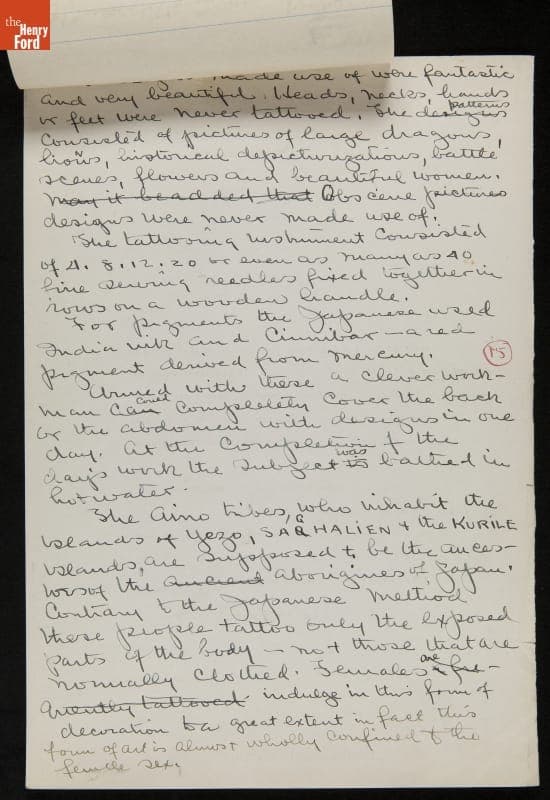 the
Henry
Ford
made use of were fantastic
and very beautiful. Heads, necks, hands
or feet were never tattooed. The designs patterns
consisted of pictures of large dragons,
lions, historical depicturizations, battle
scenes, flowers and beautiful women.
may it be added that Obscene pictures
designs were never made use of.
The tattooing instrument consisted
of 4. 8. 12. 20 or even as many as 40
fine sewing needles fixed together in
rows on a wooden handle.
For pigments the Japanese used
India ink and Cinnibar — a red
pigment derived from mercury.
15
Armed with these a clever work-
man can could completely cover the back
or the abdomen with designs in one
day. At the completion of the
day's work the subject is was bathed in
hot water.
The Aino tribes, who inhabit the
islands of Yezo, SAGHALIEN + the KURILE
islands, are supposed to be the ances-
tors of the ancient aborigines of Japan.
Contrary to the Japanese method
these people tattoo only the exposed
parts of the body — not those that are
normally clothed. Females are fre-
quently tattooed indulge in this form of
decoration to a great extent in fact this
form of art is almost wholly confined to the
female sex.